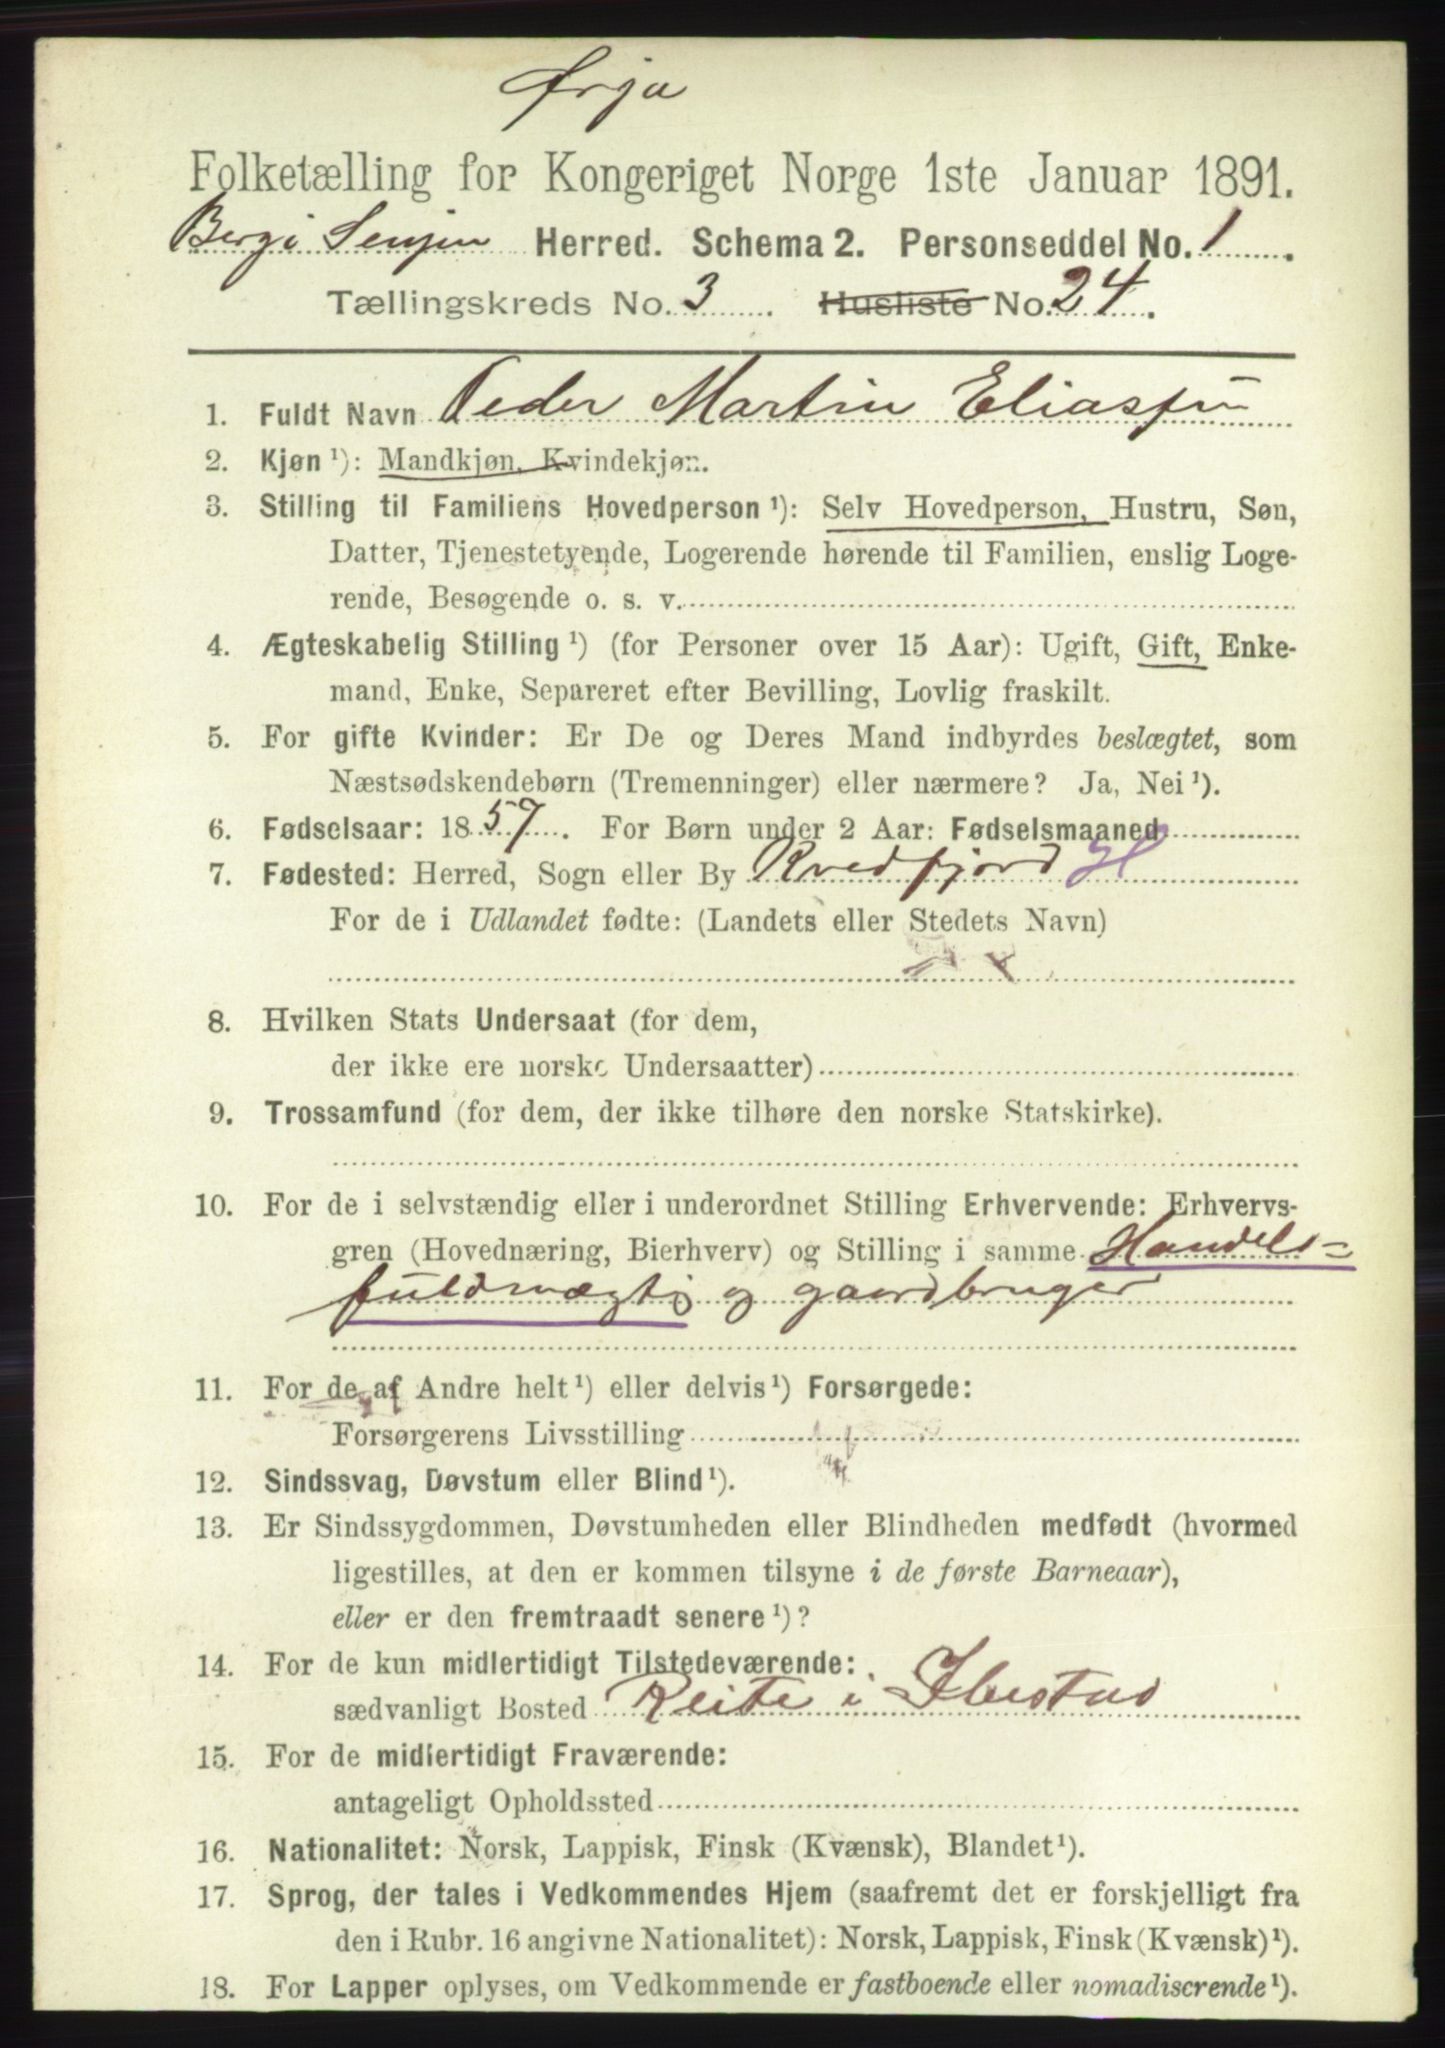 Ørja
Folketælling for Kongeriget Norge 1ste Januar 1891.
Berg i Senjen Herred. Schema 2. Personseddel No. 1.
Tællingskreds No. 3. Husliste No. 24.
1. Fuldt Navn Peder Martin Eliassen
2. Kjøn ¹): Mandkjøn, Kvindekjøn.
3. Stilling til Familiens Hovedperson ¹): Selv Hovedperson, Hustru, Søn,
Datter, Tjenestetyende, Logerende hørende til Familien, enslig Loge-
rende, Besøgende o. s. v.
4. Ægteskabelig Stilling ¹) (for Personer over 15 Aar): Ugift, Gift, Enke-
mand, Enke, Separeret efter Bevilling, Lovlig fraskilt.
5. For gifte Kvinder: Er De og Deres Mand indbyrdes beslægtet, som
Næstsødskendebørn (Tremenninger) eller nærmere? Ja, Nei ¹).
6. Fødselsaar: 1857. For Børn under 2 Aar: Fødselsmaaned
7. Fødested: Herred, Sogn eller By Kvedfjord H
For de i Udlandet fødte: (Landets eller Stedets Navn)
8. Hvilken Stats Undersaat (for dem,
der ikke ere norske Undersaatter)
9. Trossamfund (for dem, der ikke tilhøre den norske Statskirke).
10. For de i selvstændig eller i underordnet Stilling Erhvervende: Erhvervs-
gren (Hovednæring, Bierhverv) og Stilling i samme Handels-
fuldmægtig og gaardbruger
11. For de af Andre helt ¹) eller delvis ¹) Forsørgede:
Forsørgerens Livsstilling
12. Sindssvag, Døvstum eller Blind ¹).
13. Er Sindssygdommen, Døvstumheden eller Blindheden medfødt (hvormed
ligestilles, at den er kommen tilsyne i de første Barneaar),
eller er den fremtraadt senere ¹)?
14. For de kun midlertidigt Tilstedeværende:
sædvanligt Bosted Reite i Ibestad
15. For de midlertidigt Fraværende:
antageligt Opholdssted
16. Nationalitet: Norsk, Lappisk, Finsk (Kvænsk), Blandet ¹).
17. Sprog, der tales i Vedkommendes Hjem (saafremt det er forskjelligt fra
den i Rubr. 16 angivne Nationalitet): Norsk, Lappisk, Finsk (Kvænsk) ¹).
18. For Lapper oplyses, om Vedkommende er fastboende eller nomadiserende ¹).